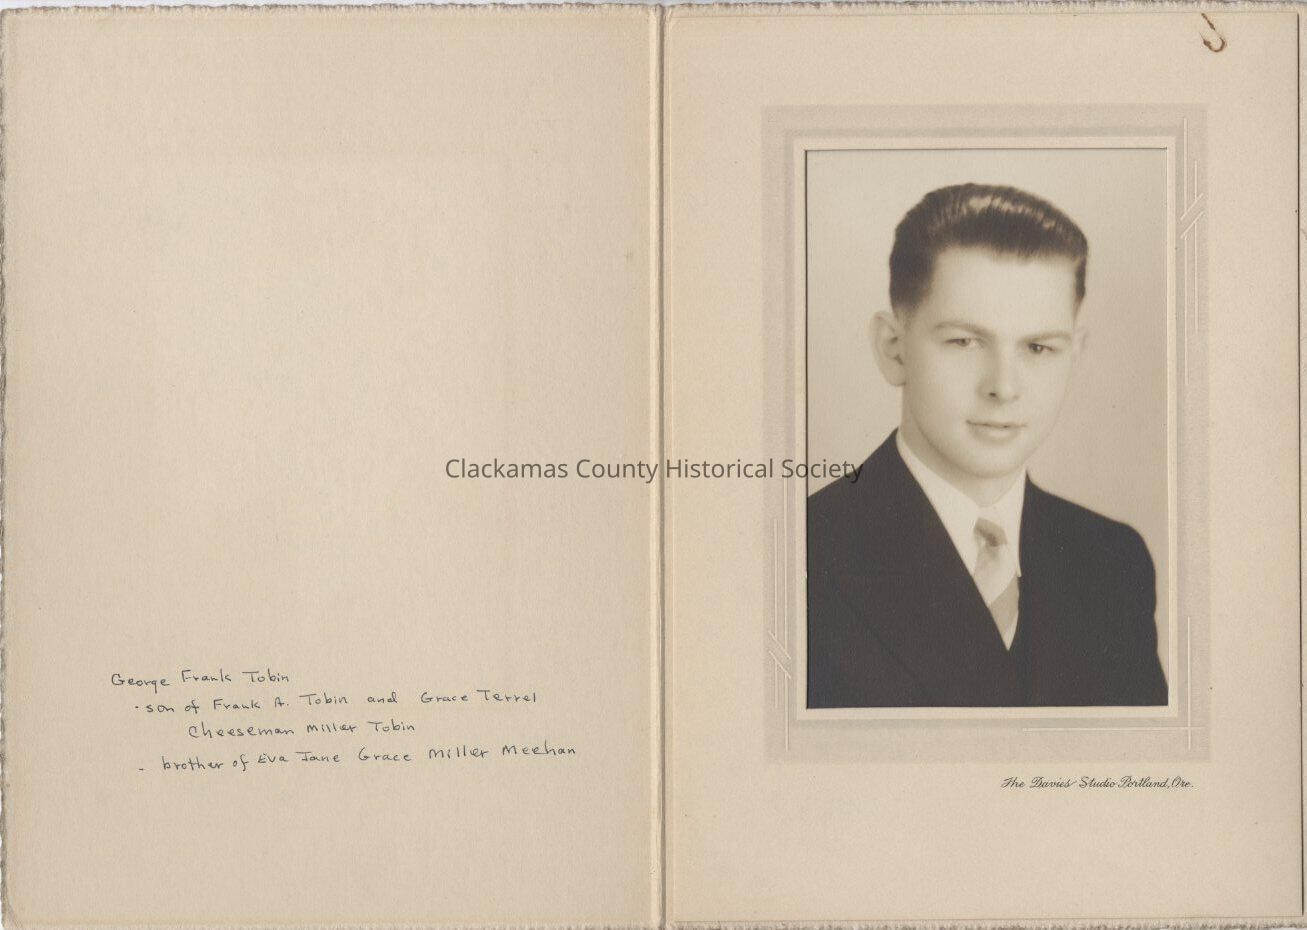 George Frank Tobin
- son of Frank A. Tobin and Grace Terrel
Cheeseman Miller Tobin
- brother of Eva Jane Grace Miller Meehan
Clackamas County Historical Society
The Davies Studio Portland, Ore.